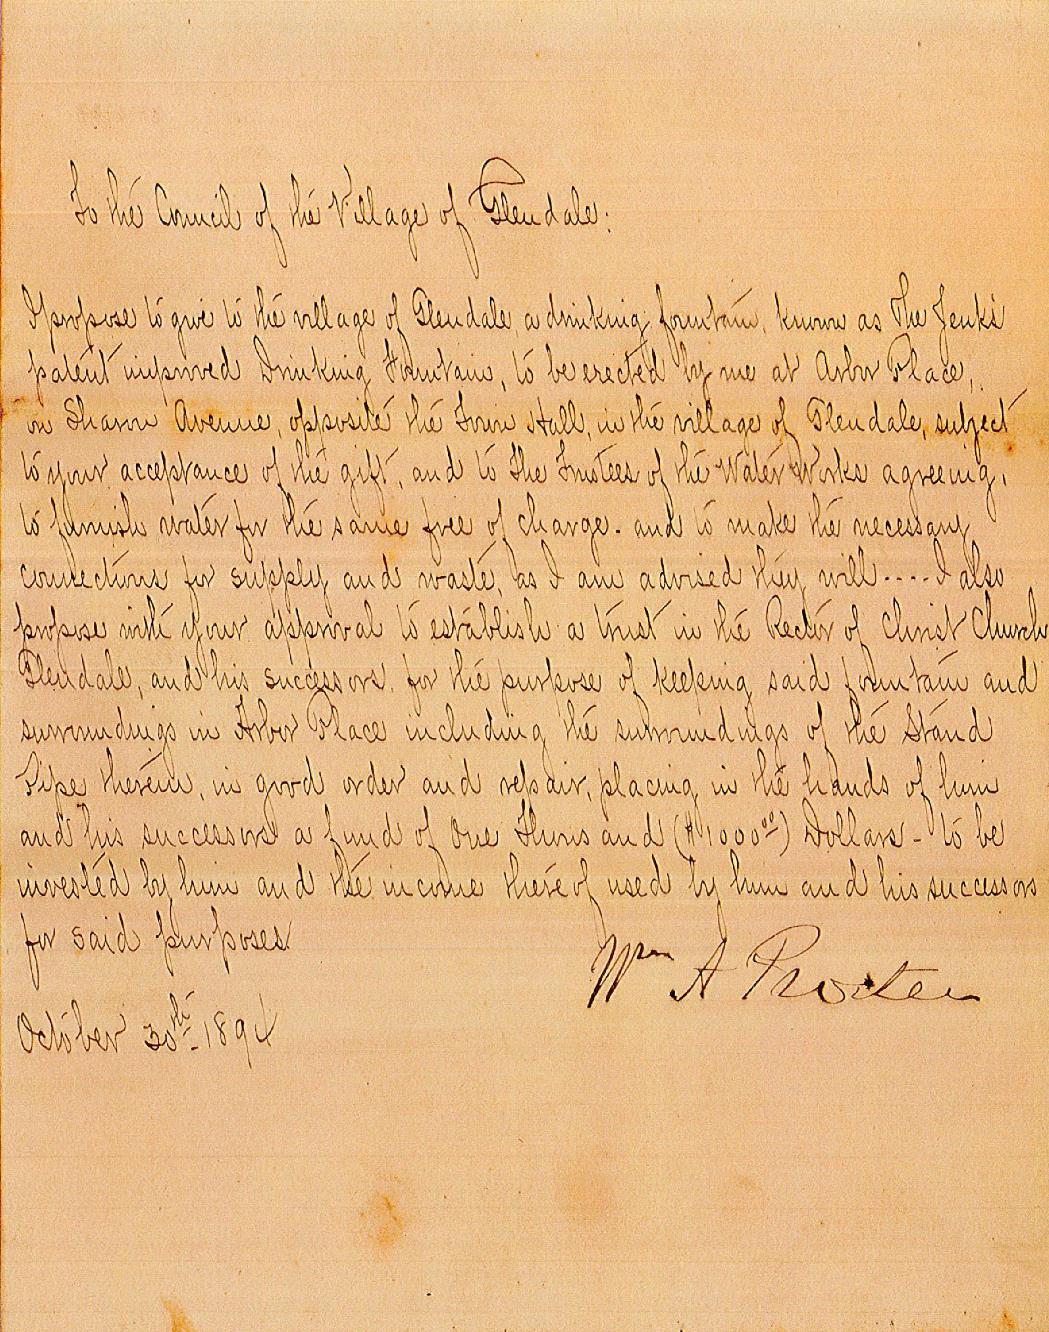 To the Council of the Village of Glendale:
I propose to give to the village of Glendale a drinking fountain, known as The Jenks
patent improved Drinking Fountain, to be erected by me at Arbor Place,
on Sharon Avenue, opposite the Town Hall, in the village of Glendale, subject
to your acceptance of the gift, and to the Trustees of the Water Works agreeing,
to furnish water for the same free of charge. and to make the necessary
connections for supply and waste, as I am advised they will .... I also
propose with your approval to establish a trust in the Rector of Christ Church
Glendale, and his successors, for the purpose of keeping said fountain and
surroundings in Arbor Place including the surroundings of the Stand
Pipe therein, in good order and repair, placing in the hands of him
and his successors a fund of One Thousand ($1000⁰⁰) Dollars - to be
invested by him and the income thereof used by him and his successors
for said purposes
Wm A Procter
October 30th 1894